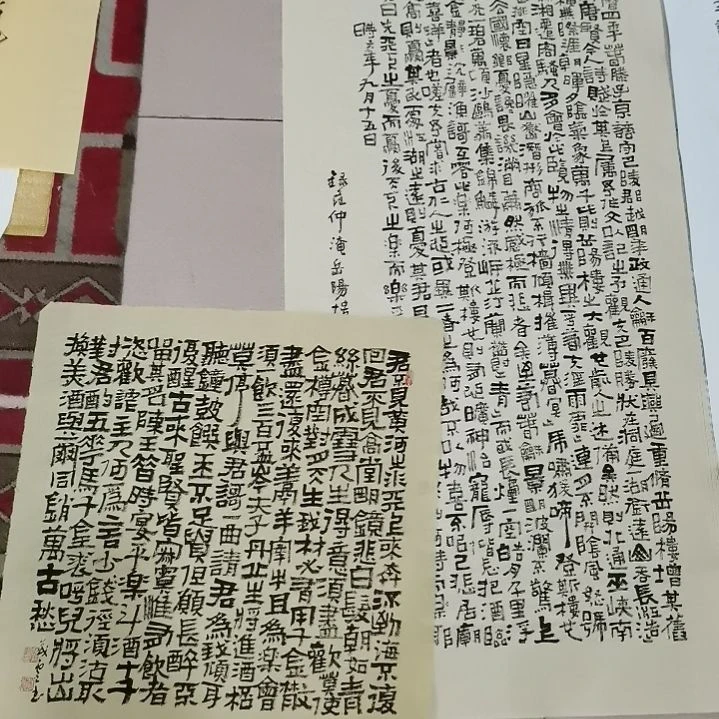 四年春滕子京謫守巴陵郡越明年政通人和百廢具興乃重脩岳陽樓增其舊
唐賢今人詩賦於其上屬予作文以記之予觀夫巴陵勝狀在洞庭一湖銜遠山吞長江浩
橫無際涯朝暉夕陰氣象萬千此則岳陽樓之大觀也前人之述備矣然則北通巫峽南
湘遷客騷人多會於此覽物之情得無異乎若夫霪雨霏霏連月不開陰風怒號
日星隱曜山岳潛形商旅不行檣傾楫摧薄暮冥冥虎嘯猿啼登斯樓也
去國懷鄉憂讒畏譏滿目蕭然感極而悲者矣至若春和景明波瀾不驚上
光一碧萬頃沙鷗翔集錦鱗游泳岸芷汀蘭郁郁青青而或長煙一空皓月千里浮
金靜影沉璧漁歌互答此樂何極登斯樓也則有心曠神怡寵辱偕忘把酒臨
喜洋洋者也嗟夫予嘗求古仁人之心或異二者之為何哉不以物喜不以己悲居廟
高則憂其民處江湖之遠則憂其君
曰先天下之憂而憂後天下之樂而樂
時六年九月十五日
錄范仲淹岳陽樓
君不見黃河之水天上來奔流到海不復
回君不見高堂明鏡悲白髮朝如青
絲暮成雪人生得意須盡歡莫使
金樽空對月天生我材必有用千金散
盡還復來烹羊宰牛且為樂會
須一飲三百杯岑夫子丹丘生將進酒杯
莫停與君歌一曲請君為我傾耳
聽鐘鼓饌玉不足貴但願長醉不
復醒古來聖賢皆寂寞惟有飲者
留其名陳王昔時宴平樂斗酒十千
恣歡謔主人何為言少錢徑須沽取
對君酌五花馬千金裘呼兒將出
換美酒與爾同銷萬古愁